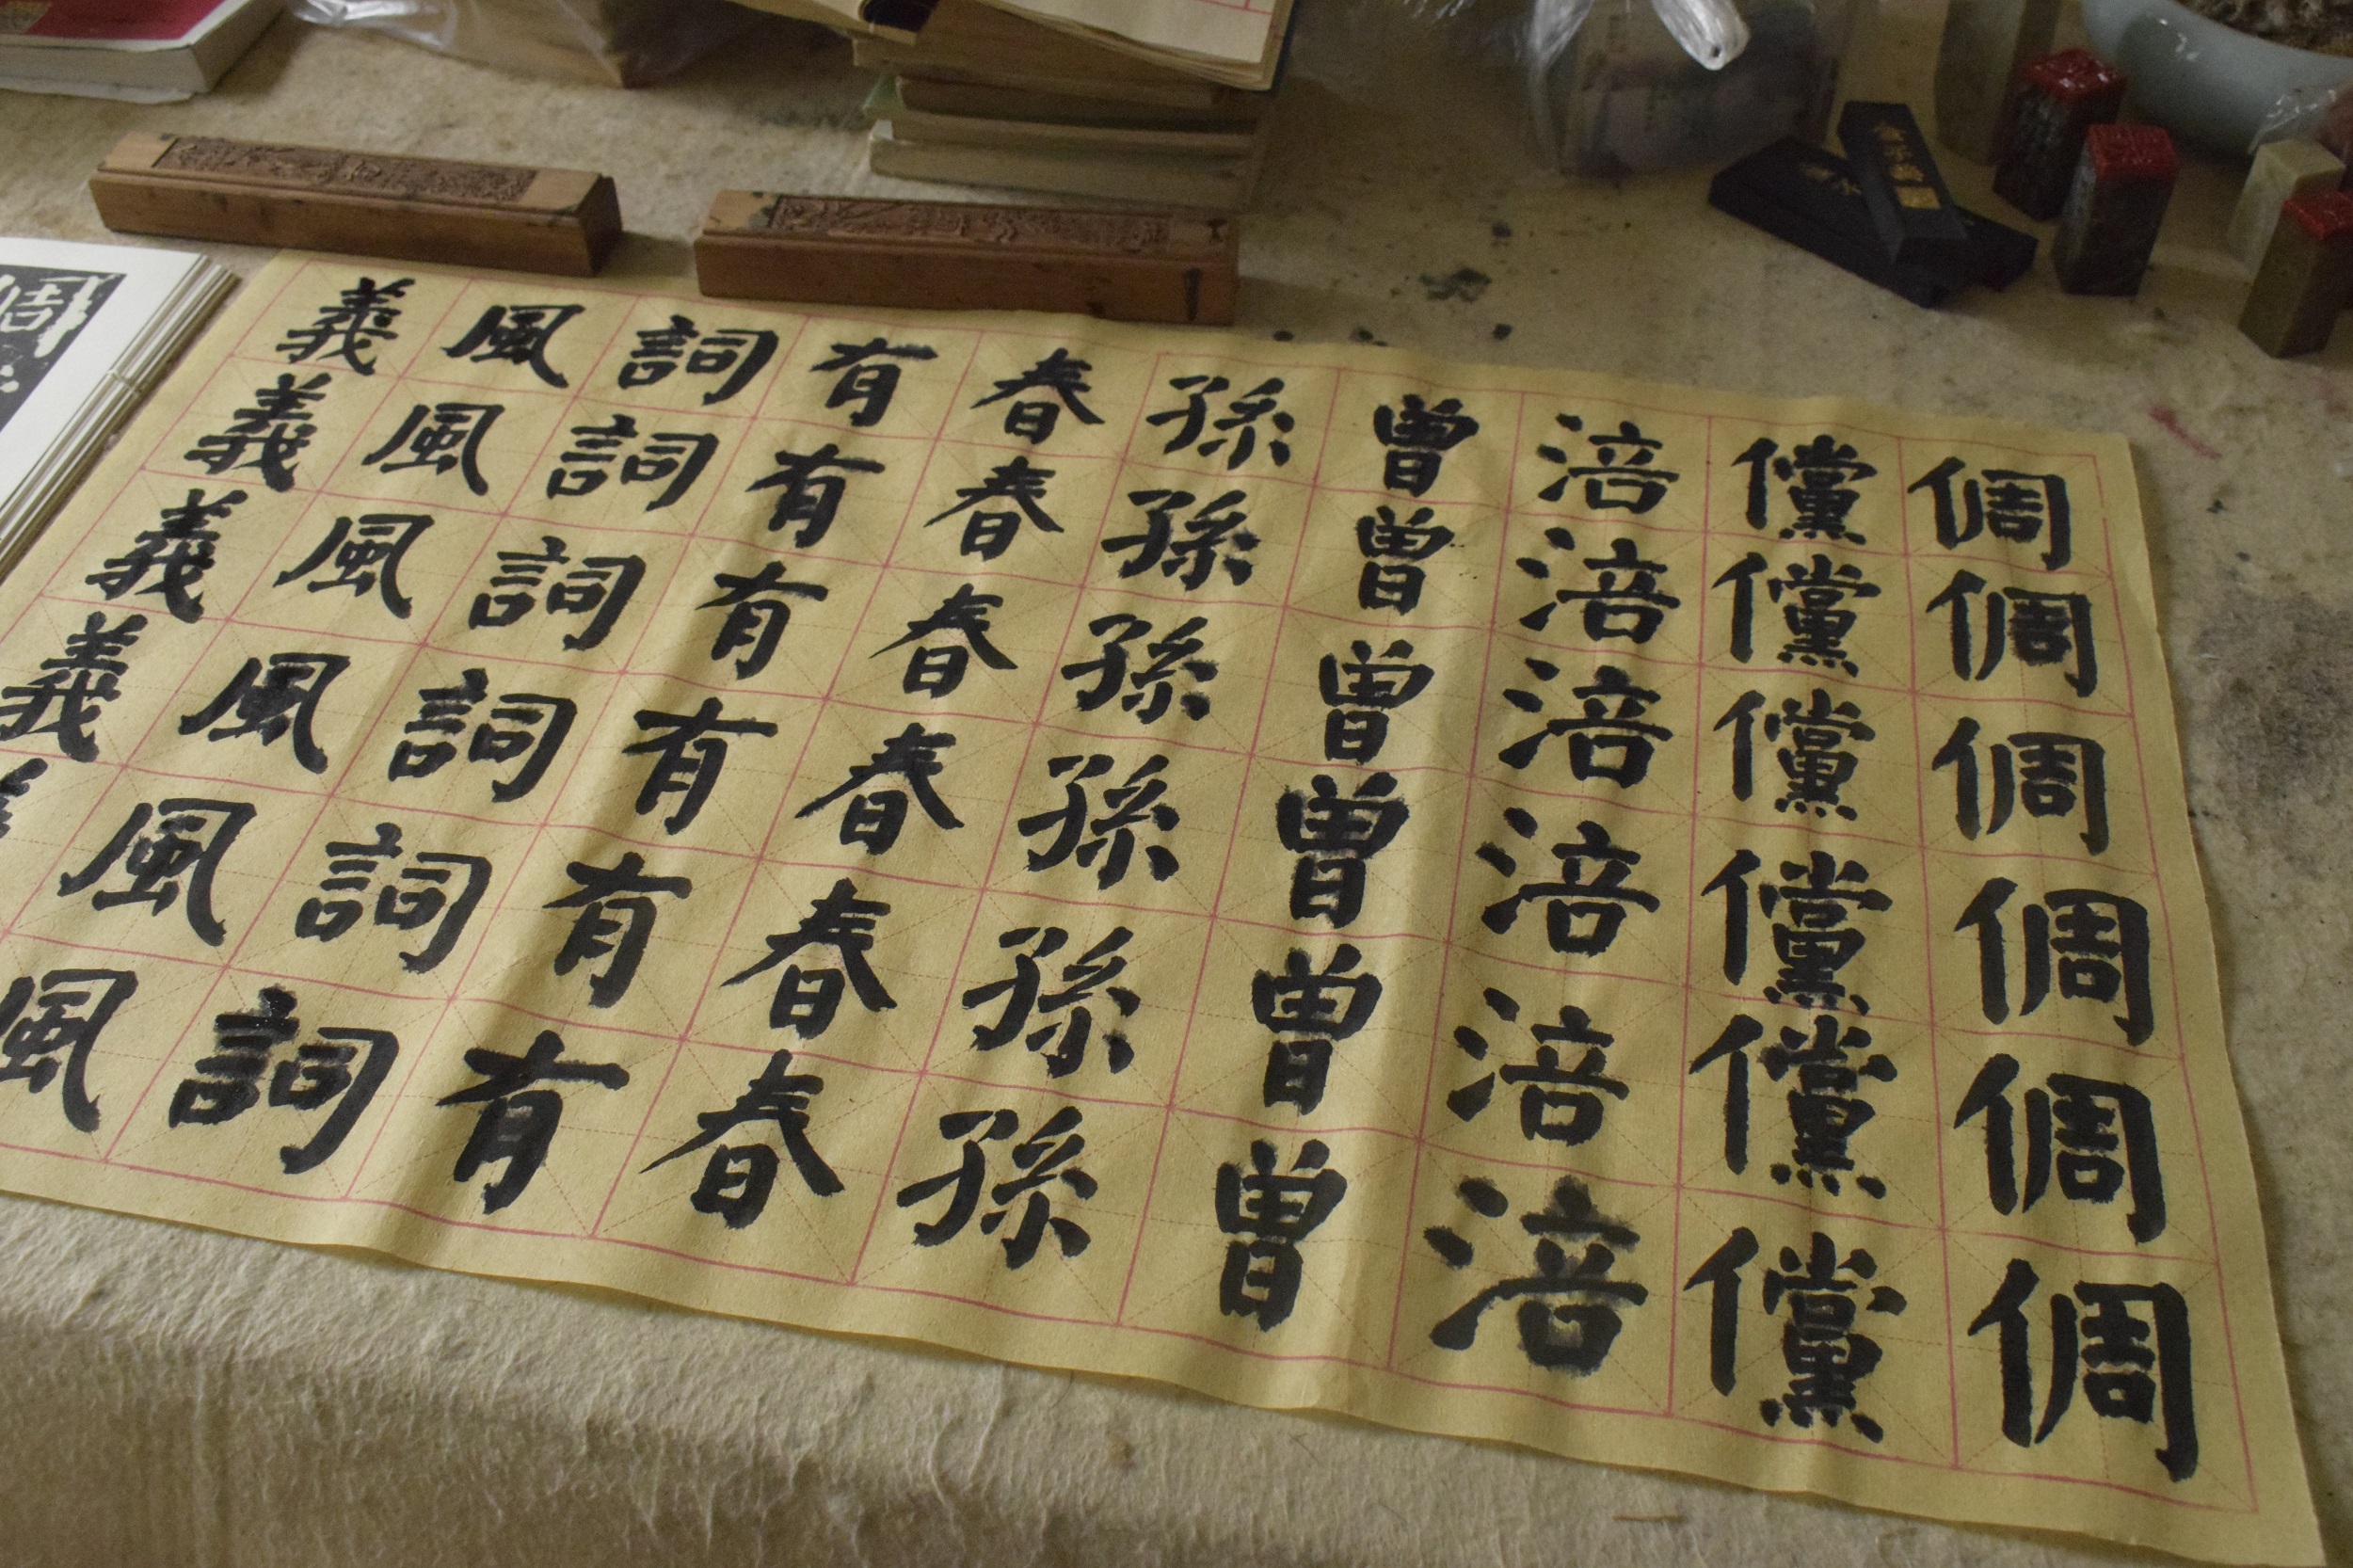 倜倜倜倜倜倜
儻儻儻儻儻儻
涪涪涪涪涪涪
曾曾曾曾曾曾
孫孫孫孫孫孫
春春春春春春
有有有有有有
詞詞詞詞詞詞
風風風風風風
義義義義